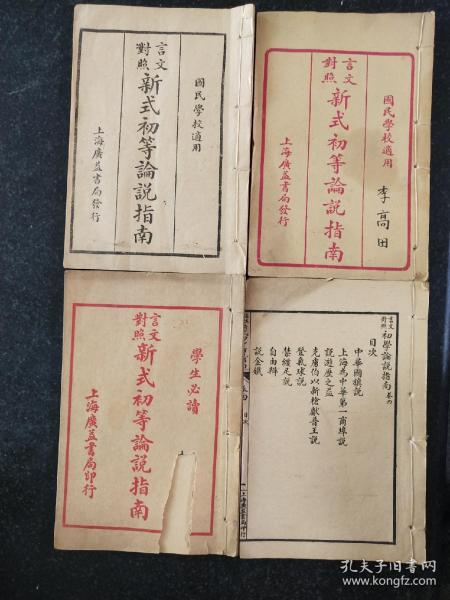 國民學校適用
言文
對照
新式初等論說指南
上海廣益書局發行
國民學校適用
李高田
言文
對照
新式初等論說指南
上海廣益書局發行
學生必讀
言文
對照
新式初等論說指南
上海廣益書局印行
言文
對照
初學論說指南 卷四
目次
中華國旗說
上海為中華第一商埠說
說遊歷之益
克虜伯以新槍獻普王說
登氣球說
禁纏足說
自由辯
說金鐵
卷四
目次
一
上海廣益書局印行
孔夫子旧书网
www.kongfz.com